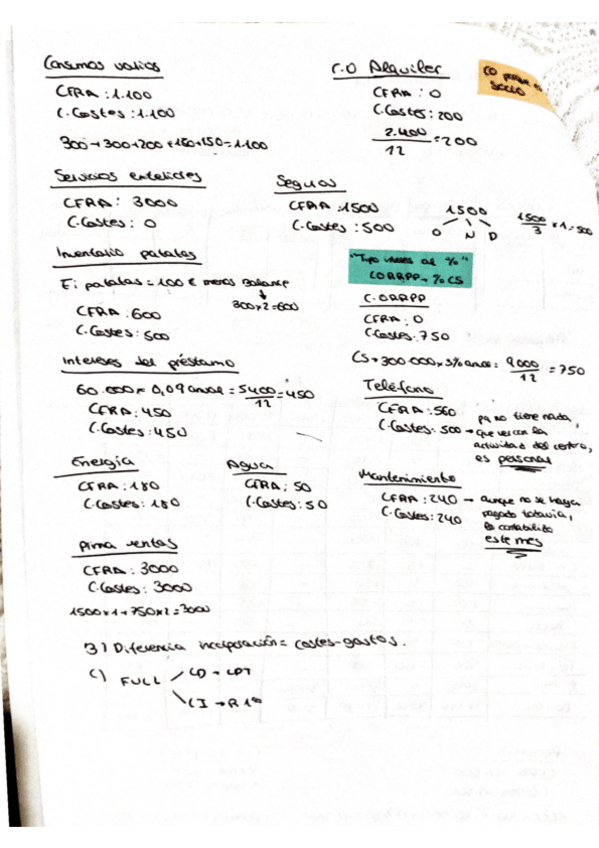 Consumos varios
CFRA: 1.100
C.Costes: 1.100
300+300+200+150+150=1.100
C.O Alquiler
CFRA: 0
C.Costes: 200
2.400
12
=200
CO porque es
socio
Servicios exteriores
CFRA: 3000
C.Costes: 0
Seguros
CFRA: 1500
C.Costes: 500
1500
O N D
1500
3
x1=500
Inventario patatas
Ei patatas = 100 € menos balance
300x2=600
CFRA: 600
C.Costes: 500
"Tipo interes al %"
CORRPP → % CS
C.ORRPP
CFRA: 0
C.Costes: 750
CS → 300.000 x 3% anual = 9000
12
= 750
Intereses del préstamo
60.000 x 0,09 anual = 5400
12
=450
CFRA: 450
C.Costes: 450
Teléfono
CFRA: 560
C.Costes: 500 → pq no tiene nada
que ver con la
actividad del centro,
es personal
Energía
CFRA: 180
C.Costes: 180
Agua
CFRA: 50
C.Costes: 50
Mantenimiento
CFRA: 240 → aunque no se haya
C.Costes: 240
pagado todavía,
lo contabilizo
este mes
Prima ventas
CFRA: 3000
C.Costes: 3000
1500x1+750x2=3000
3) Diferencia incorporación = costes-gastos.
C) FULL
CD → CPT
CI → R 1ª